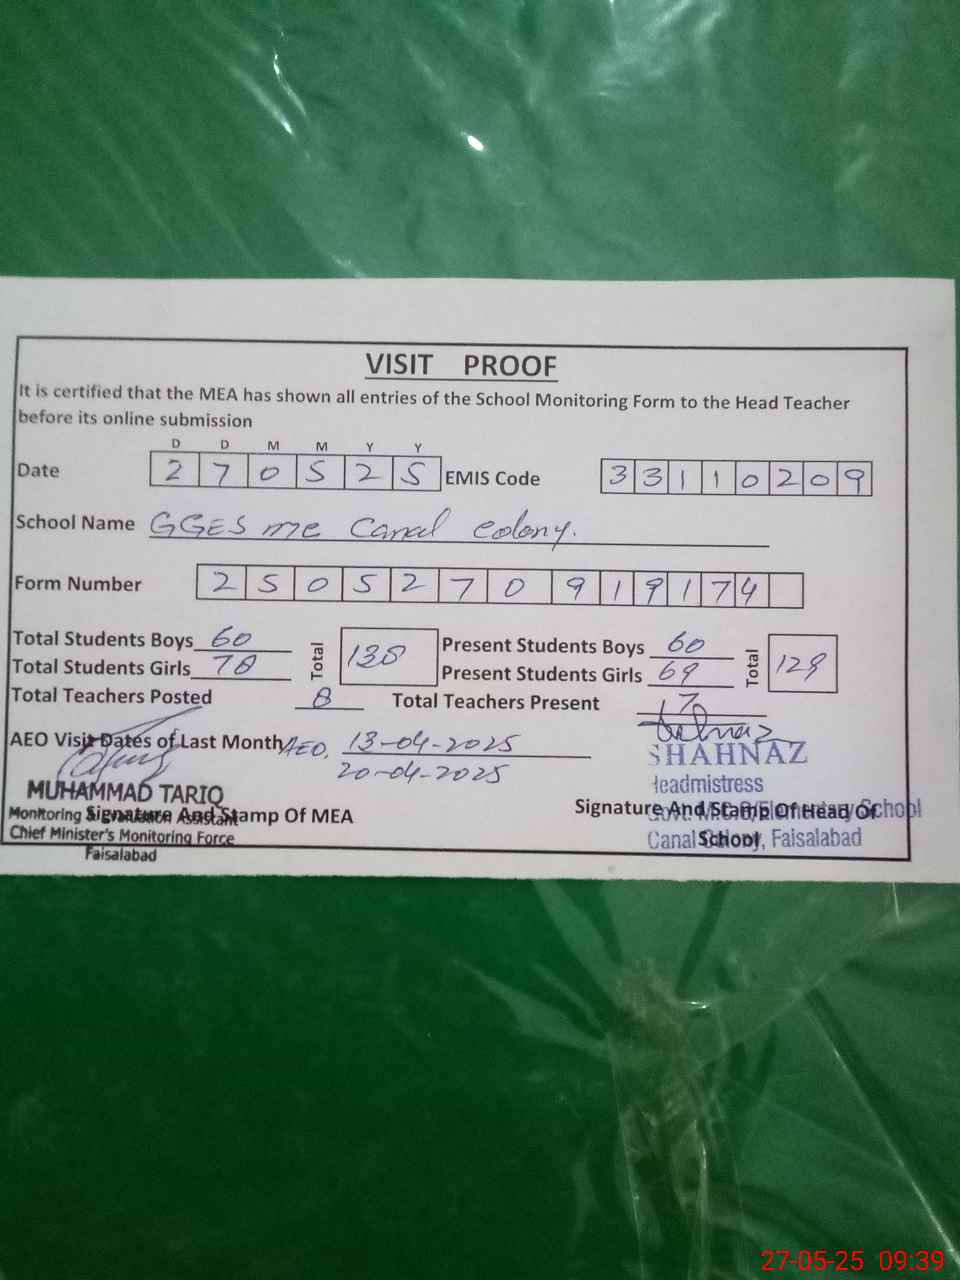 VISIT PROOF
It is certified that the MEA has shown all entries of the School Monitoring Form to the Head Teacher
before its online submission
D D M M Y Y
Date 2 7 0 5 2 5 EMIS Code 3 3 1 1 0 2 0 9
School Name GGES mc Canal colony.
Form Number 2 5 0 5 2 7 0 9 1 9 1 7 4
Total Students Boys 60 Total 138 Present Students Boys 60 Total 129
Total Students Girls 78 Present Students Girls 69
Total Teachers Posted 8 Total Teachers Present 7
AEO Visit Dates of Last Month AEO, 13-04-2025
20-04-2025
SHAHNAZ
Headmistress
MUHAMMAD TARIQ
Signature And Stamp Of MEA
Signature And Stamp Of Head Of
School
Monitoring & Evaluation Assistant
Chief Minister's Monitoring Force
Faisalabad
Govt. M.C.G/Elementary School
Canal Colony, Faisalabad
27-05-25 09:39